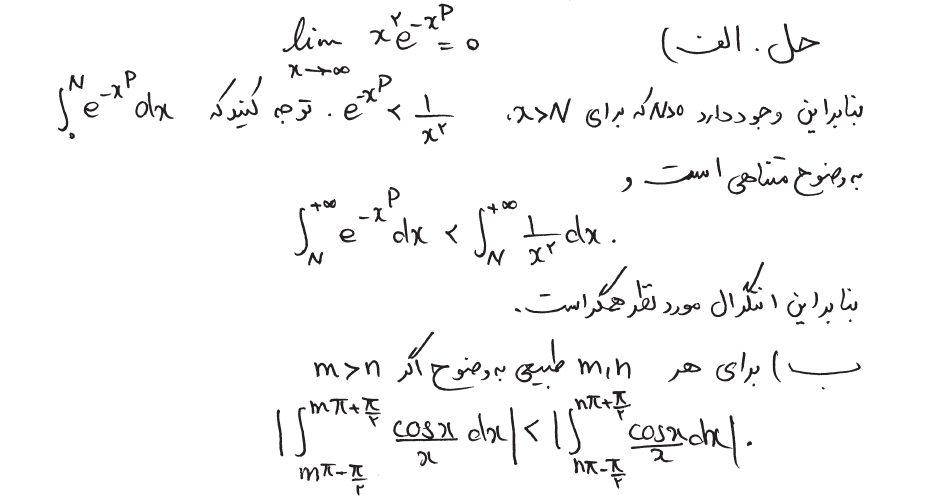 حل. الف) lim_{x→∞} x^۲ e^{-x^p} = ۰
بنابراین وجود دارد N>۰ که برای x>N، e^{-x^p} < ۱/x^۲. توجه کنید که ∫_۰^N e^{-x^p} dx
به وضوح متناهی است و
∫_N^{+∞} e^{-x^p} dx < ∫_N^{+∞} ۱/x^۲ dx.
بنابراین انتگرال مورد نظر همگراست.
ب) برای هر m,n طبیعی به وضوح اگر m>n
|∫_{mπ-π/۲}^{mπ+π/۲} cosx/x dx| < |∫_{nπ-π/۲}^{nπ+π/۲} cosx/x dx|.